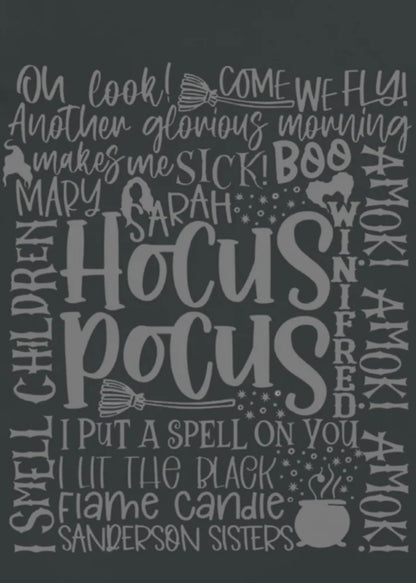 Oh look! COME WE FLY!
Another glorious morning
makes me SICK! BOO
MARY SARAH
WINIFRED
HOCUS
POCUS
I SMELL CHILDREN
AMOK! AMOK! AMOK!
I PUT A SPELL ON YOU
I LIT THE BLACK
Flame Candle
SANDERSON SISTERS